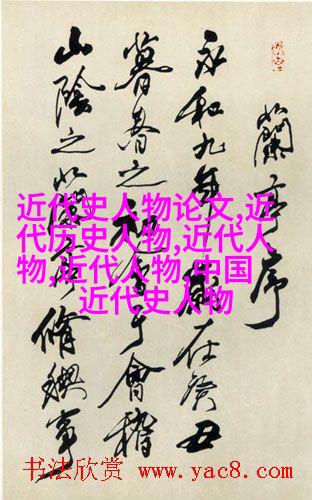 蘭亭序
永和九年歲在癸丑
暮春之初會于會稽
山陰之蘭亭脩禊事
近代史人物论文,近
代历史人物,近代人
物,近代人物,中国
近代史人物
书法欣赏 www.yac8.com